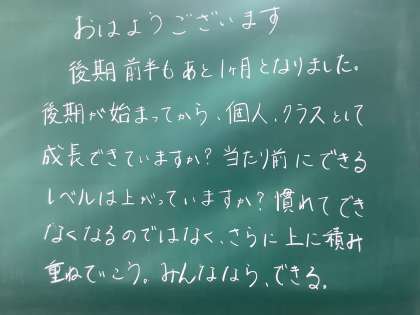 おはようございます
後期前半もあと1ヶ月となりました。
後期が始まってから、個人、クラスとして
成長できていますか？当たり前にできる
レベルは上がっていますか？慣れてでき
なくなるのではなく、さらに上に積み
重ねでいこう。みんななら、できる。